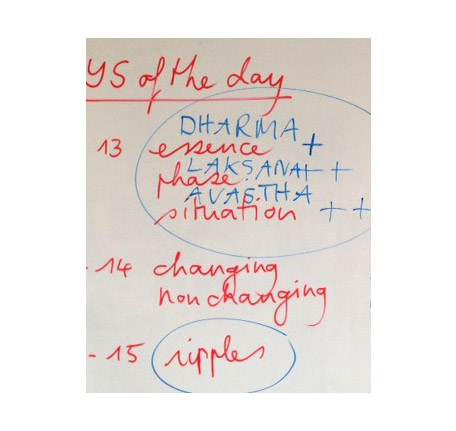 YS of the day
DHARMA
13 essence +
LAKSANA + +
phase
AVASTHA
situation + +
- 14 changing
non changing
- 15 ripples